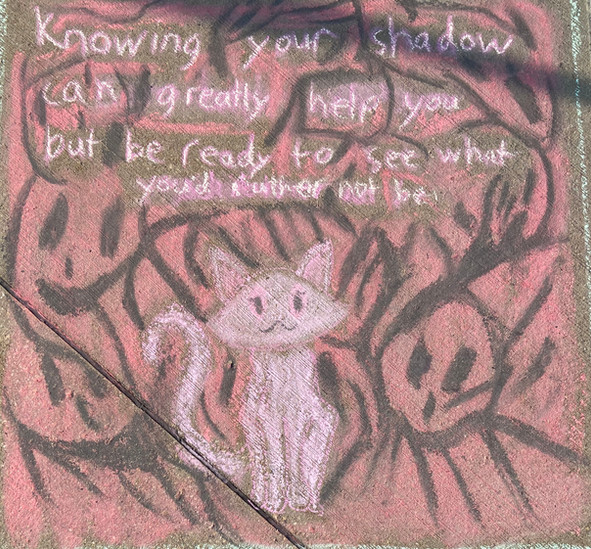 Knowing your shadow
can greatly help you
but be ready to see what
you'd ruther not be